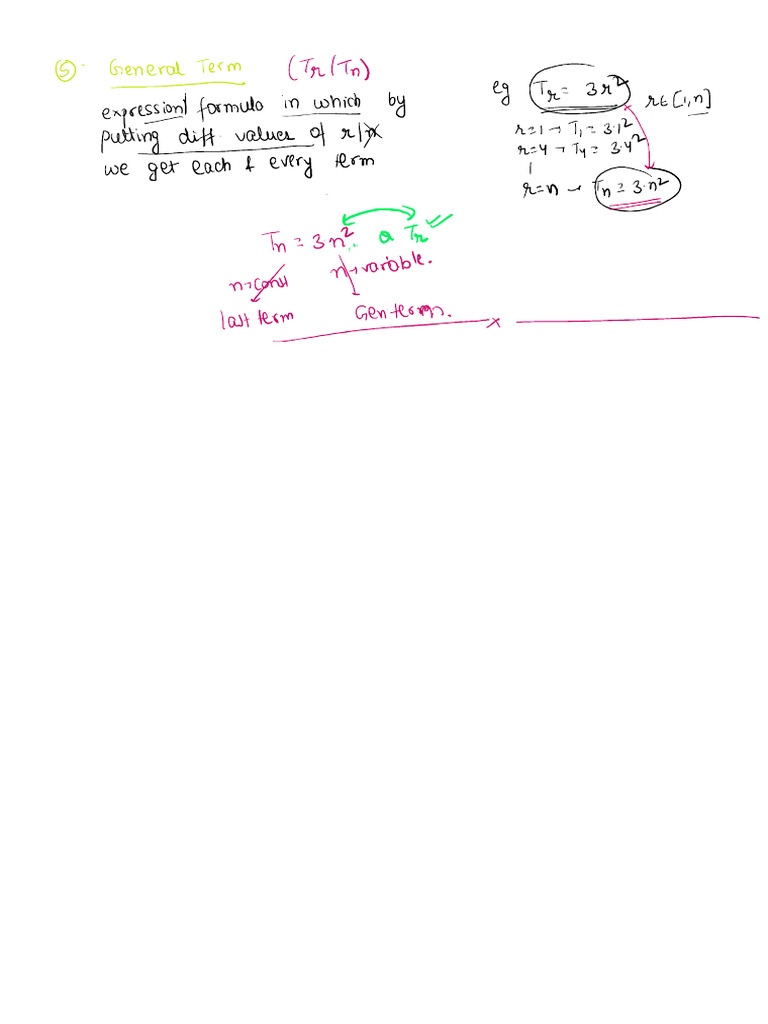 ⑤. General Term (Tr/Tn)
expression/ formula in which by
putting diff values of r/n
we get each & every term
eg Tr = 3r² r∈[1,n]
r=1 → T1 = 3·1²
r=4 → T4 = 3·4²
r=n → Tn = 3·n²
Tn = 3n² Tr
n→const n→variable.
last term Gen term.
x